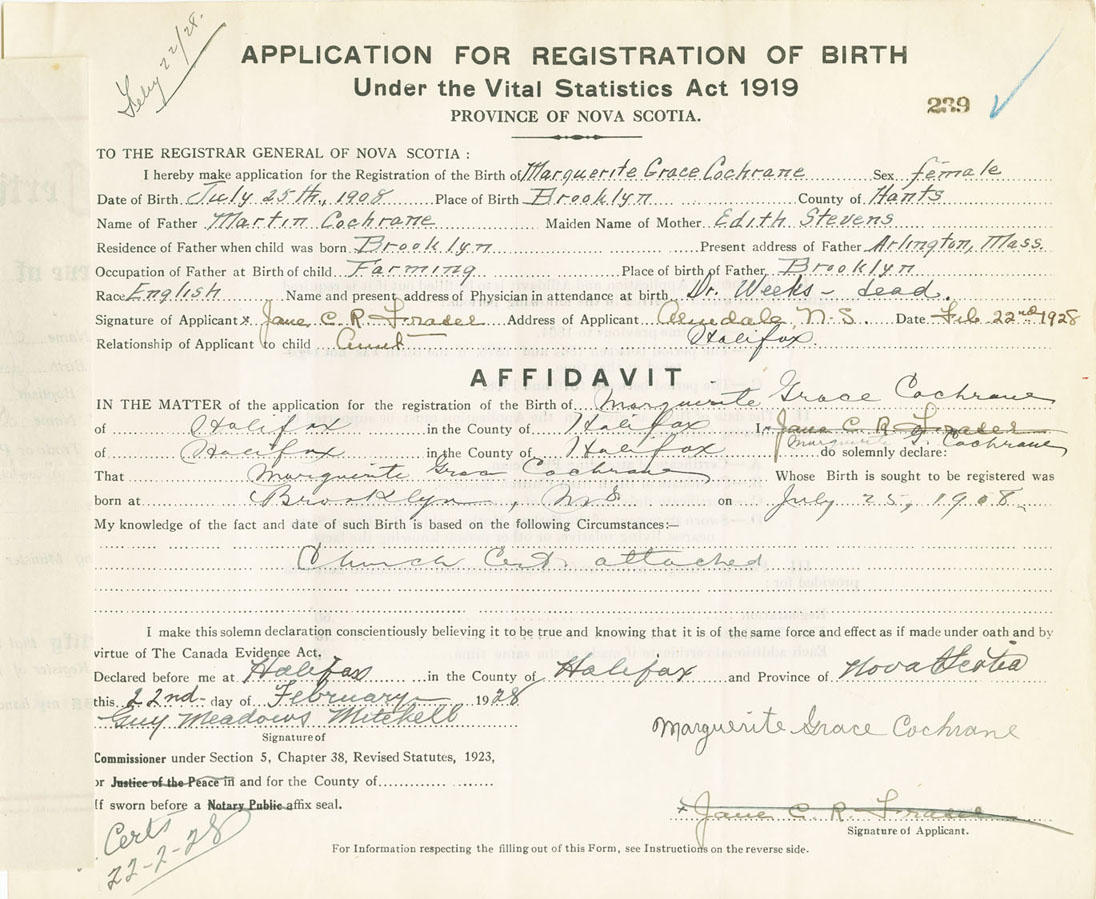 Feby 22/28.
APPLICATION FOR REGISTRATION OF BIRTH
Under the Vital Statistics Act 1919
PROVINCE OF NOVA SCOTIA.
239
TO THE REGISTRAR GENERAL OF NOVA SCOTIA :
I hereby make application for the Registration of the Birth of Marguerite Grace Cochrane Sex female
Date of Birth July 25th., 1908 Place of Birth Brooklyn County of Hants
Name of Father Martin Cochrane Maiden Name of Mother Edith Stevens
Residence of Father when child was born Brooklyn Present address of Father Arlington, Mass.
Occupation of Father at Birth of child Farming Place of birth of Father Brooklyn
Race English Name and present address of Physician in attendance at birth Dr. Weeks - dead.
Signature of Applicant x Jane C. R. Fraser Address of Applicant Armdale, N-S. Date Feb 22nd 1928
Relationship of Applicant to child Aunt Halifax.
AFFIDAVIT
IN THE MATTER of the application for the registration of the Birth of Marguerite Grace Cochrane
of Halifax in the County of Halifax I, Jane C. R. Fraser
Marguerite G. Cochrane
of Halifax in the County of Halifax do solemnly declare:
That Marguerite Grace Cochrane Whose Birth is sought to be registered was
born at Brooklyn, NS on July 25, 1908.
My knowledge of the fact and date of such Birth is based on the following Circumstances:—
Church Cert. attached
I make this solemn declaration conscientiously believing it to be true and knowing that it is of the same force and effect as if made under oath and by
virtue of The Canada Evidence Act.
Declared before me at Halifax in the County of Halifax and Province of Nova Scotia
this 22nd day of February 1928
Guy Meadows Mitchell
Signature of
Marguerite Grace Cochrane
Commissioner under Section 5, Chapter 38, Revised Statutes, 1923,
or Justice of the Peace in and for the County of
If sworn before a Notary Public affix seal.
x Jane C. R. Fraser
Signature of Applicant.
Certs
22-2-28
For Information respecting the filling out of this Form, see Instructions on the reverse side.